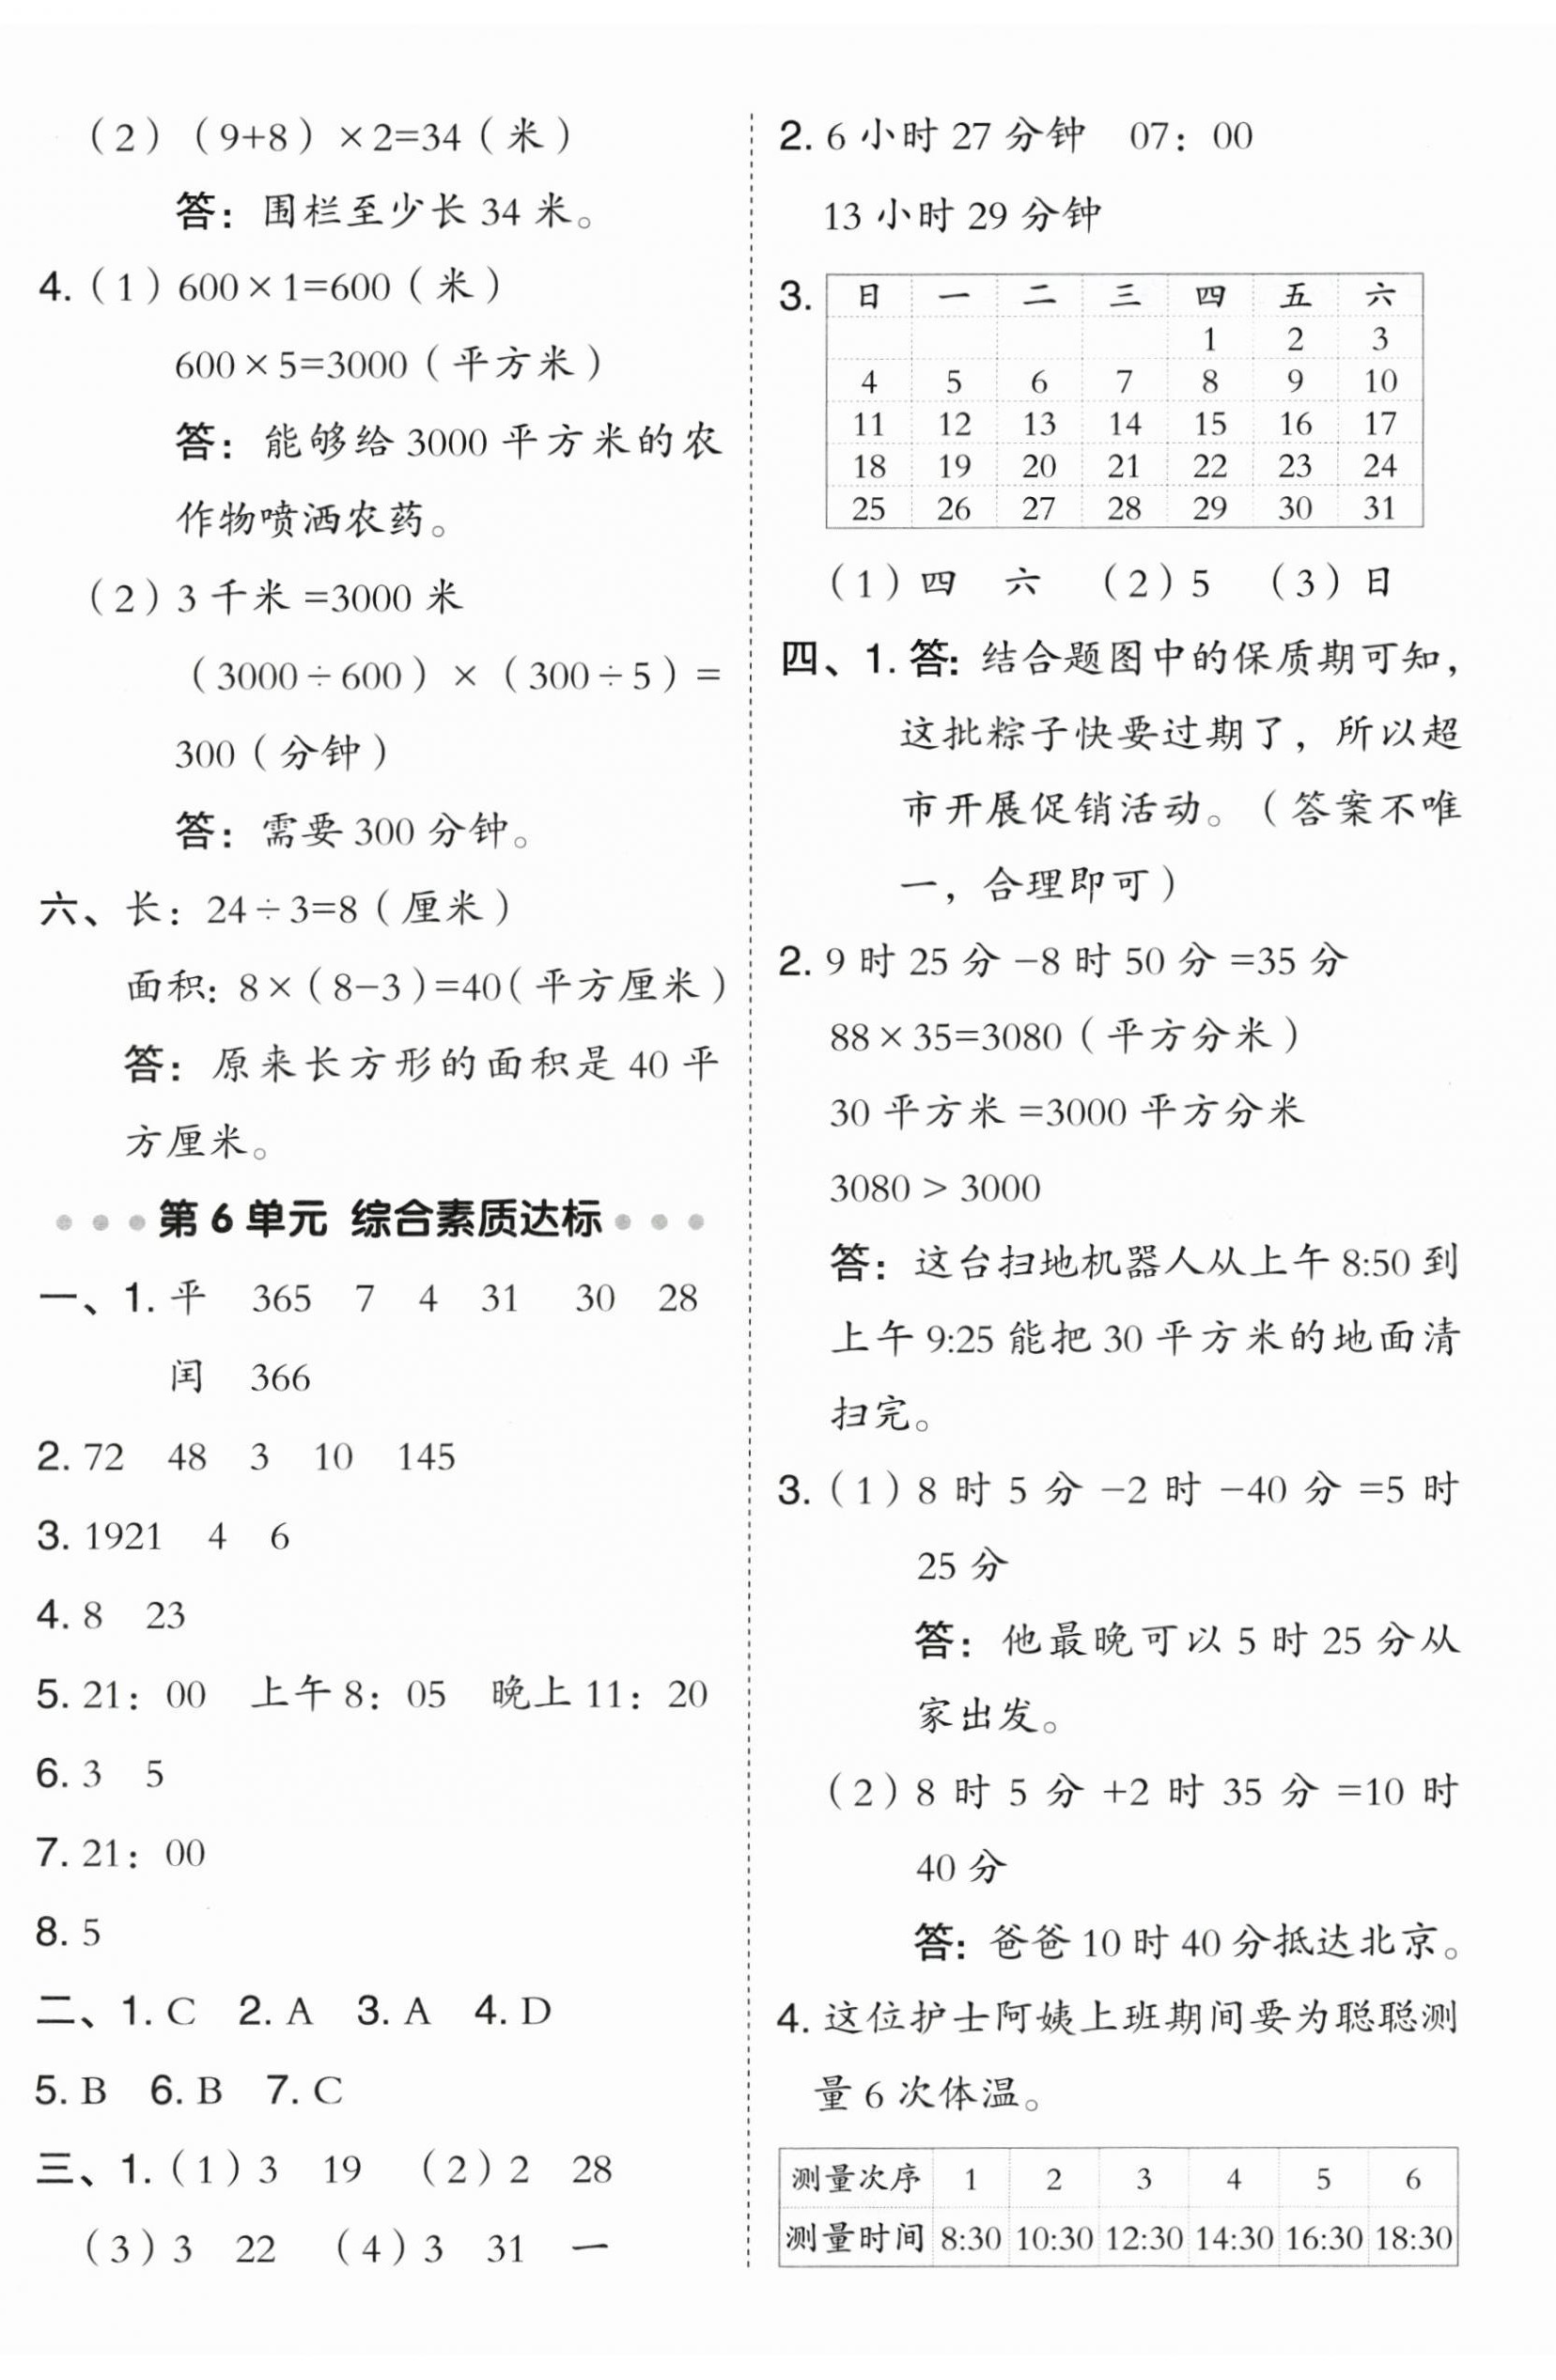 （2）（9+8）×2=34（米）
答：围栏至少长 34 米。
4.（1）600×1=600（米）
600×5=3000（平方米）
答：能够给 3000 平方米的农
作物喷洒农药。
（2）3 千米 =3000 米
（3000÷600）×（300÷5）=
300（分钟）
答：需要 300 分钟。
六、长：24÷3=8（厘米）
面积：8×（8-3）=40（平方厘米）
答：原来长方形的面积是 40 平
方厘米。
第 6 单元 综合素质达标
一、1. 平 365 7 4 31 30 28
闰 366
2. 72 48 3 10 145
3. 1921 4 6
4. 8 23
5. 21：00 上午 8：05 晚上 11：20
6. 3 5
7. 21：00
8. 5
二、1. C 2. A 3. A 4. D
5. B 6. B 7. C
三、1.（1）3 19 （2）2 28
（3）3 22 （4）3 31 一
2. 6 小时 27 分钟 07：00
13 小时 29 分钟
3. 日 一 二 三 四 五 六
1 2 3
4 5 6 7 8 9 10
11 12 13 14 15 16 17
18 19 20 21 22 23 24
25 26 27 28 29 30 31
（1）四 六 （2）5 （3）日
四、1. 答：结合题图中的保质期可知，
这批粽子快要过期了，所以超
市开展促销活动。（答案不唯
一，合理即可）
2. 9 时 25 分 -8 时 50 分 =35 分
88×35=3080（平方分米）
30 平方米 =3000 平方分米
3080 > 3000
答：这台扫地机器人从上午 8:50 到
上午 9:25 能把 30 平方米的地面清
扫完。
3.（1）8 时 5 分 -2 时 -40 分 =5 时
25 分
答：他最晚可以 5 时 25 分从
家出发。
（2）8 时 5 分 +2 时 35 分 =10 时
40 分
答：爸爸 10 时 40 分抵达北京。
4. 这位护士阿姨上班期间要为聪聪测
量 6 次体温。
测量次序 1 2 3 4 5 6
测量时间 8:30 10:30 12:30 14:30 16:30 18:30